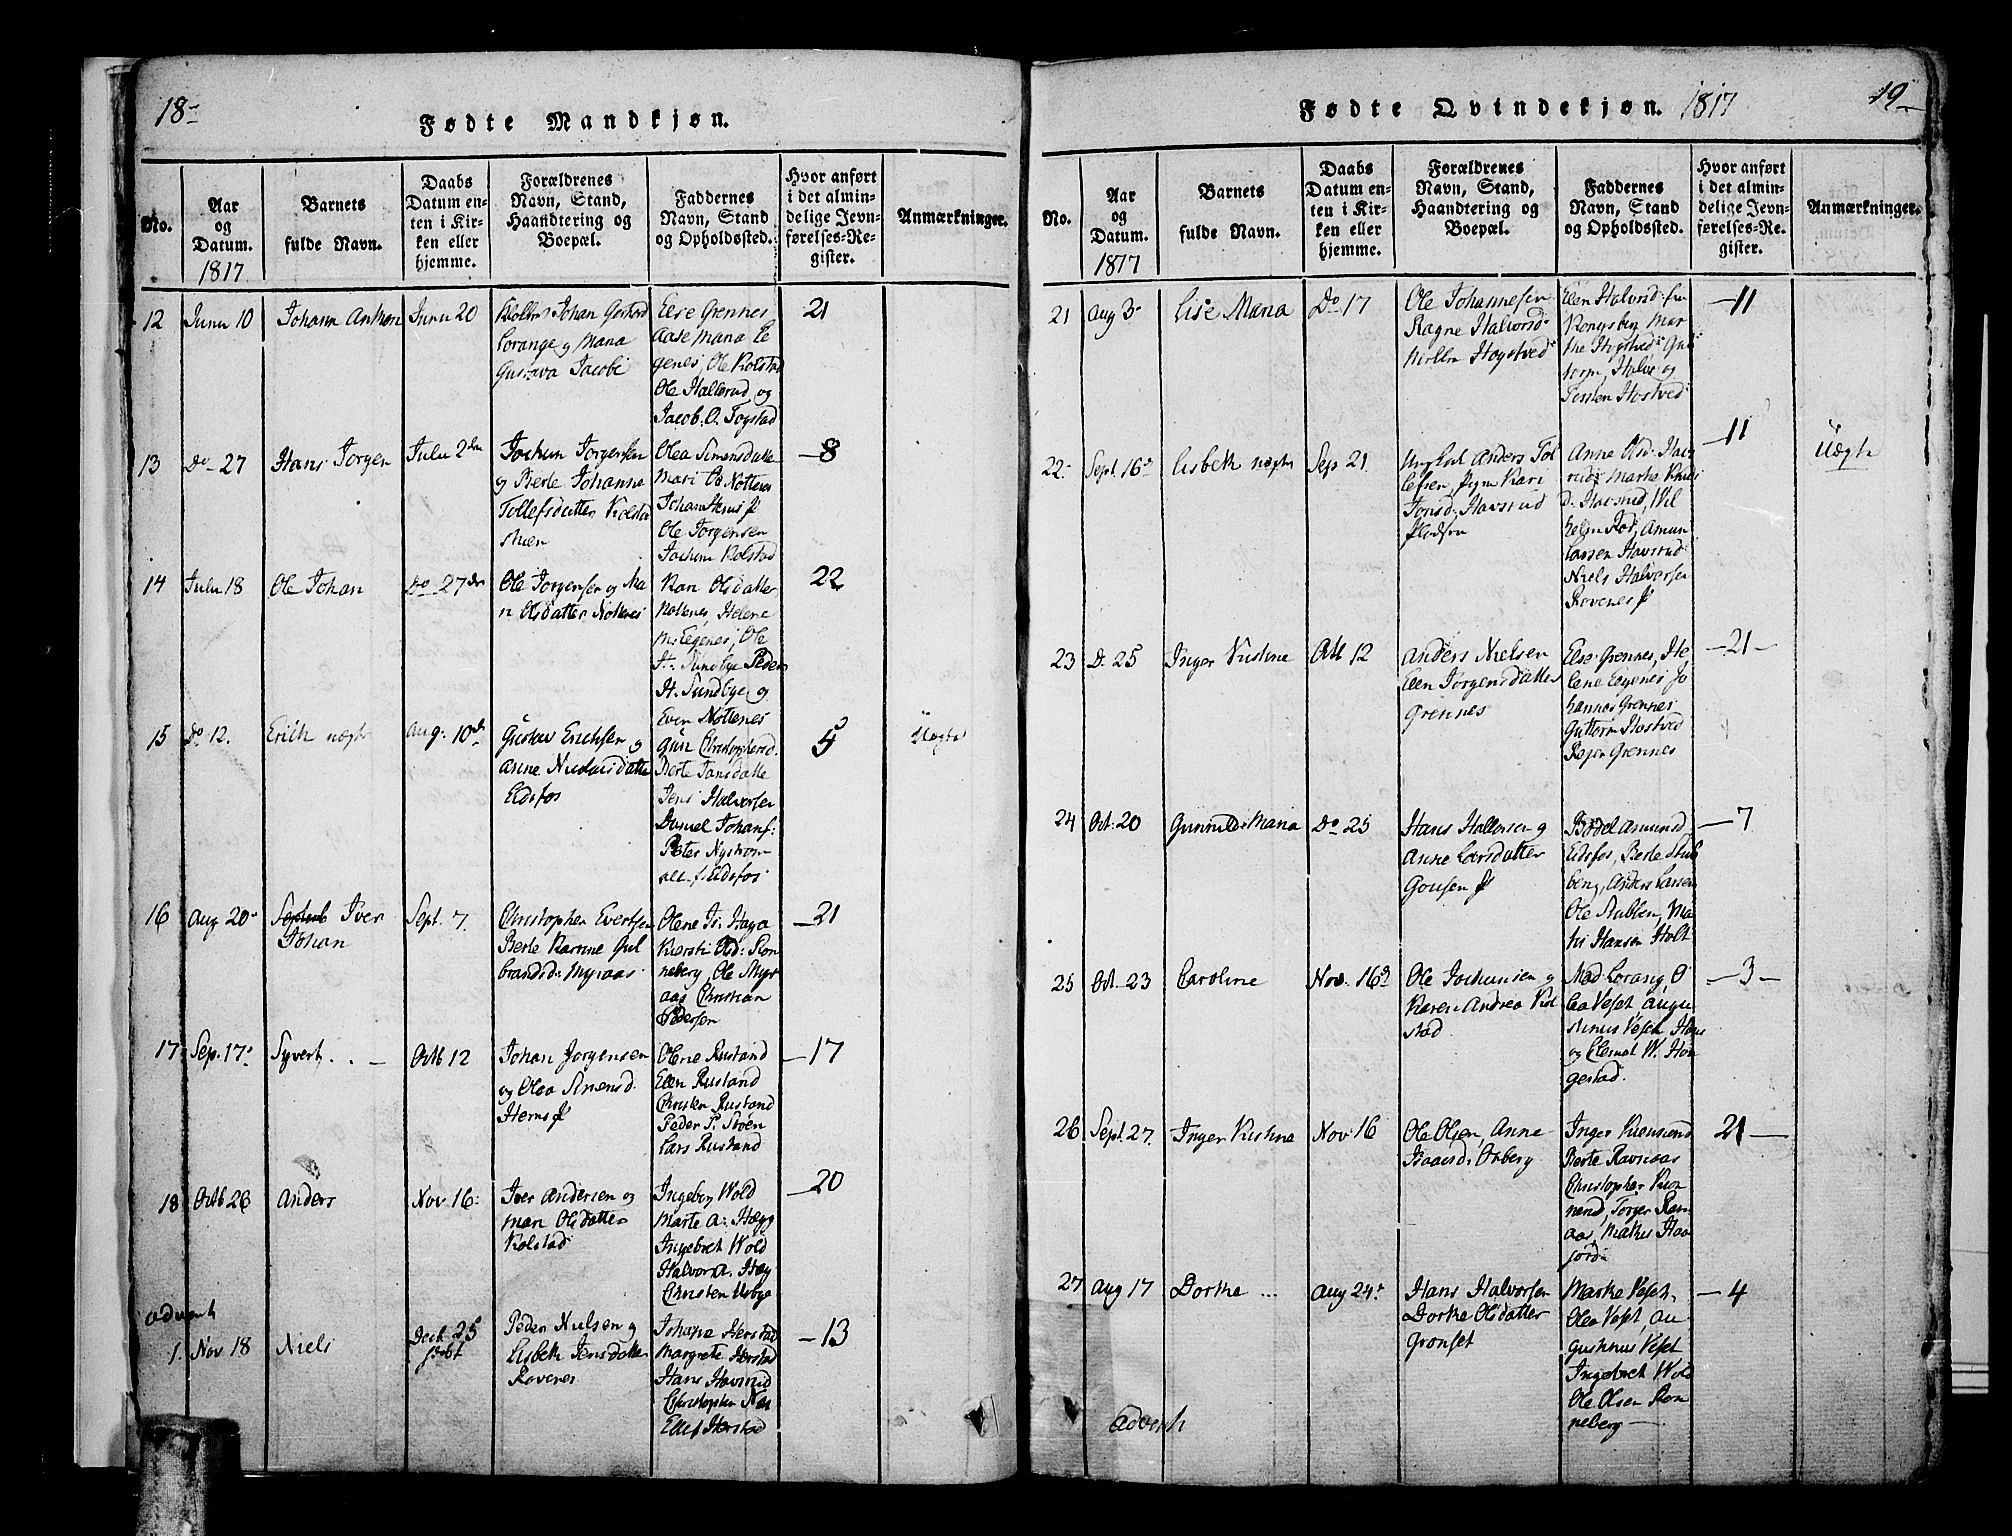 18
Fødte Mandkjøn.
No.
Aar
og
Datum.
1817
Barnets
fulde Navn.
Daabs
Datum en-
ten i Kir-
ken eller
hjemme.
Forældrenes
Navn, Stand,
Haandtering og
Boepæl.
Faddernes
Navn, Stand
og Opholdssted.
Hvor anført
i det almin-
delige Jevn-
førelses-Re-
gister.
Anmærkninger.
12
Juni 10
Johann Anthon
Juni 20
Johan
Lorange og Maria
Gustava Jacobi
Else Grennes
Aase Maria Ee
genes, Ole Kolstad
Ole Hallerud og
Jacob: O. Fogstad
21
13
Do 27
Hans Jorgen
Juli 2den
Jochum Jorgensen
og Berte Johanne
Tollefsdatter Kolstad
Olea Simensdatter
Mari Ols Nottenes
Johan
Ole Jorgensen
Jochum Kolstad
8
14
Juli 18
Ole Johan
Do 27de
Ole Jorgensen og Ma
ri Olsdatter Nottenes
Kari Olsdatter
Nottenes, Helene
Eegenes, Ole
H: Sundbye Peder
H. Sundbye og
Even Nottenes
22
15
Do 12.
Erich uægte
Aug: 10de
Gustav Erichsen og
Anne Nicolaisdatter
Eidsfos
Gun Christophersd.
Berte Jansdatter
Jens Halvorsen
Daniel Johans:
Peter Nystrom
all. f. Eidsfos
5
Uægte
16
Aug 20
Iver
Johan
Sept. 7
Christopher Evertsen
Berte Karine Gul
brandsd: Myraas
Olene Is: Haga
Kiersti Olsd: Ron
neberg, Ole Myr
aas Christian
Pedersen
21
17
Sep. 17
Syvert
Octb 12
Johan Jorgensen
og Olea Simensd.
Olene Rustand
Elen Rustand
Christen Rustand
Peder P. Støen
Lars Rustand
17
18
Octb 26
Anders
Nov 16:
Iver Andersen og
Mari Olsdatter
Kolstad
Ingeborg Wold
Marte A: Hægg
Ingebret Wold
Halvor A. Hæg
Christen Usbye
20
Advent
1.
Nov 18
Niels
Decb 25
Peder Nielsen og
Lisbeth Jensdatter
Rovenes
Johane Herstad
Margrete Herstad
Hans Havsrud
Christopher
Ellef Herstad
13
Fødte Qvindekjøn. 1817
19
No.
Aar
og
Datum.
1817
Barnets
fulde Navn.
Daabs
Datum en-
ten i Kir-
ken eller
hjemme.
Forældrenes
Navn, Stand,
Haandtering og
Boepæl.
Faddernes
Navn, Stand
og Opholdssted.
Hvor anført
i det almin-
delige Jevn-
førelses-Re-
gister.
Anmærkninger.
21
Aug 3
Lise Maria
Do 17
Ole Johannesen
Ragne Halvorsd
Hogstved
Elen Halvord: fra
Kongsberg Mar
the Hogstved Gut
torm, Halvor og
Hostved
11
22
Sept 16
Lisbeth uægte
Sep 21
Ungkarl Anders Tol
lefsen, Pigen Kari
Jonsd. Havsrud
Anne Olsd: Hav
rud Marthe
d: Havsrud, Wil
helm Rød, Amun
Larsen Havsrud
Niels Halvorsen
Rovenes
11
Uægte
23
D. 25
Inger Kistine
Octb 12
Anders Nielsen
Elen Jorgensdatter
Grennes
Else Grennes, He
lene Eegenes Jo
hannes Grennes
Guttorm Hostved
Grennes
21
24
Oct: 20
Gunnild Maria
Do 25
Hans Hallersen og
Anne Larsdatter
Bodel Amunsd
Eidsfos, Berte Stub
berg, Anders Larsen
Ole Stubben, Ma
this Hansen Holt
7
25
Oct. 23
Caroline
Nov. 16
Ole Jochumsen og
Karen Andrea Kol
stad
Mad Lorang, O
lea Veset, Augu
stinus Veset Hans
og Clemet W. Hon
gestad.
3
26
Sept. 27.
Inger Kistine
Nov: 16
Ole Olsen, Anne
Isaacsd: Orberg
Inger
Berte Ravnaas
Christopher
Torger Rav
aas, Mathis Haa
21
27
Aug 17
Dorthe
Aug 24
Hans Halvorsen
Dorthe Olsdatter
Gronset
Marthe Veset,
Olea Veset Au
gustinus Veset
Ingebret Wold
Ole Olsen Ron
neberg
4
Advent